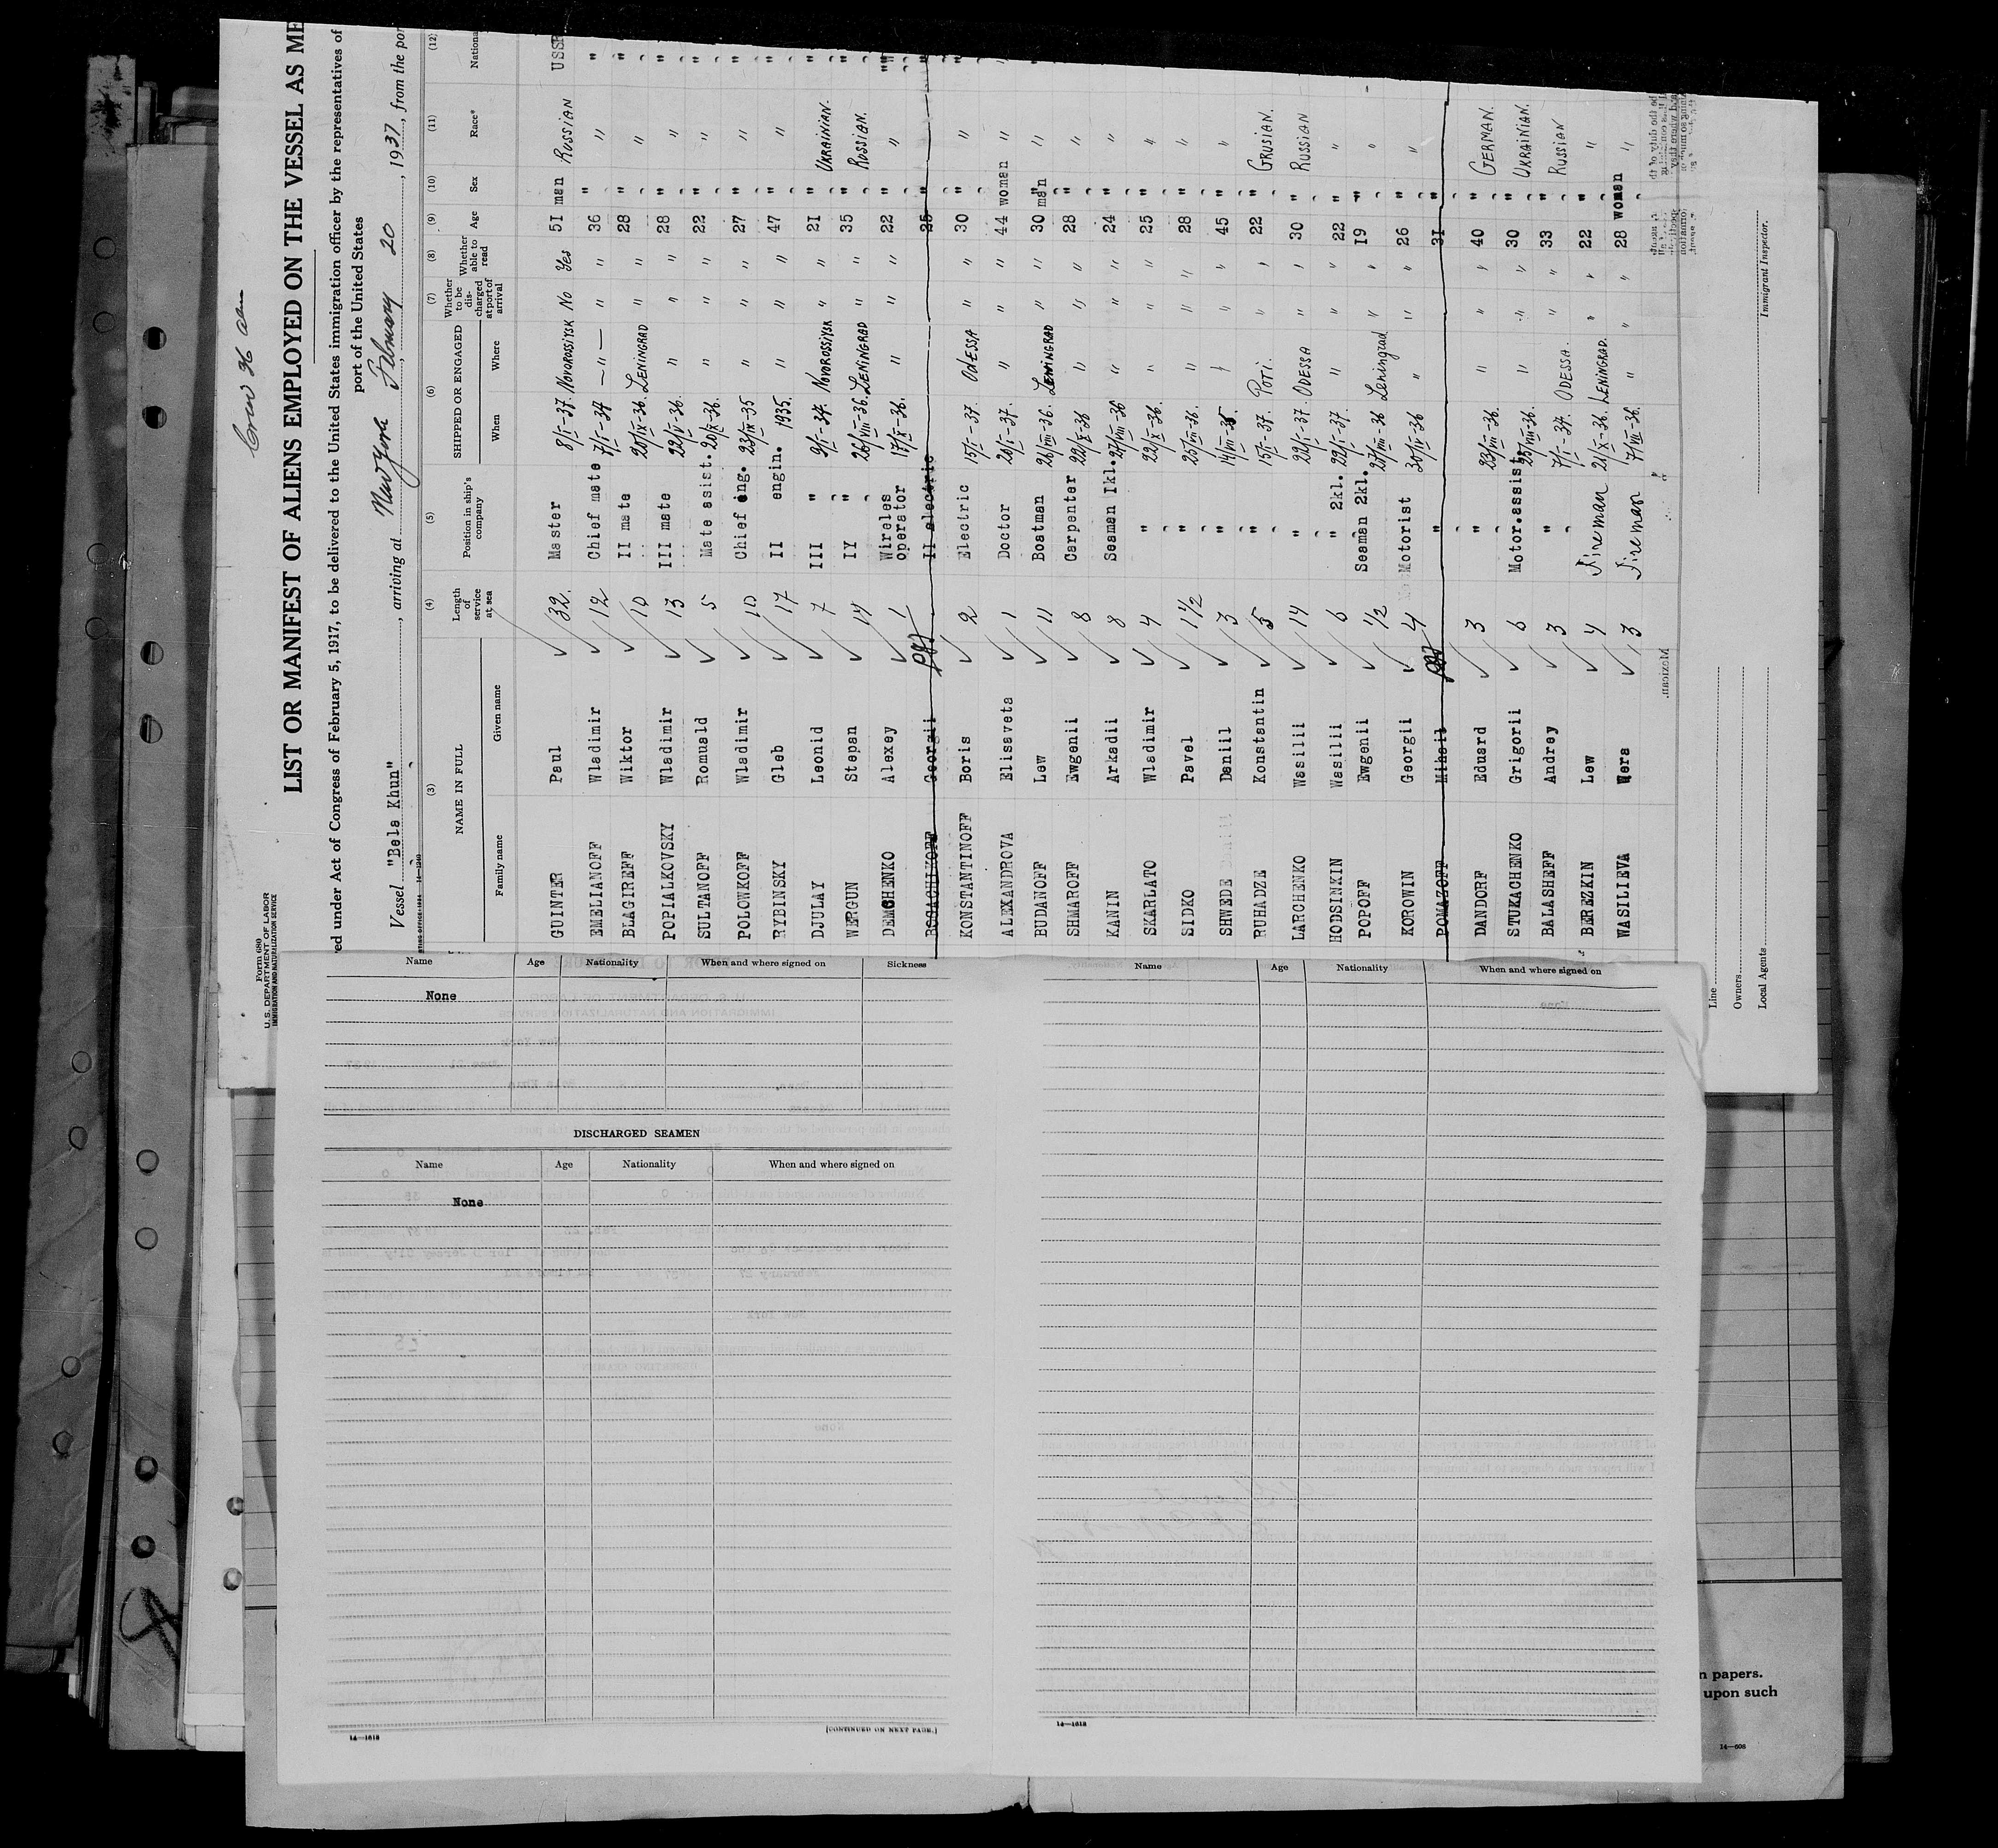 Crew 36
Form 680
U.S. DEPARTMENT OF LABOR
IMMIGRATION AND NATURALIZATION SERVICE
LIST OR MANIFEST OF ALIENS EMPLOYED ON THE VESSEL AS ME
ed under Act of Congress of February 5, 1917, to be delivered to the United States immigration officer by the representatives of
port of the United States
Vessel "Bela Khun", arriving at New York February 20, 1937, from the por
(3) (4) (5) (6) (7) (8) (9) (10) (11) (12)
NAME IN FULL Length of service at sea Position in ship's company SHIPPED OR ENGAGED Whether to be discharged at port of arrival Whether able to read Age Sex Race* Nationa
Family name Given name When Where
GUINTER Paul 32 Master 8/I-37. NOVOROSSIYSK No Yes 51 man RUSSIAN USSR
EMELIANOFF Wladimir 12 Chief mate 7/I-34 — " — " " 36 " " "
BLAGIREFF Wiktor 10 II mate 20/IX-36. LENINGRAD " " 28 " " "
POPIALKOVSKY Wladimir 13 III mate 22/V-36. " " " 28 " " "
SULTANOFF Romuald 5 Mate asist. 20/X-36. " " " 22 " " "
POLOWKOFF Wladimir 10 Chief eng. 23/IX-35 " " " 27 " " "
RYBINSKY Gleb 17 II engin. 1935. " " " 47 " " "
DJULAY Leonid 7 III " 9/I-37. NOVOROSSIYSK " " 21 " UKRAINIAN. "
WERGUN Stepan 14 IY " 26/VIII-36. LENINGRAD " " 35 " RUSSIAN. "
DEMCHENKO Alexey 1 Wireles operator 17/X-36. " " " 22 " " "
Georgii II electric 25 " "
KONSTANTINOFF Boris 2 Electric 15/I-37. ODESSA " " 30 " " "
ALEXANDROVA Elisaveta 1 Doctor 20/I-37. " " " 44 woman " "
BUDANOFF Lew 11 Boatman 26/VIII-36. LENINGRAD " " 30 man " "
SHMAROFF Ewgenii 8 Carpenter 22/X-36 " " " 28 " "
KANIN Arkadii 8 Seaman Ikl. 27/VIII-36 " " " 24 " "
SKARLATO Wladimir 4 " 22/X-36. " " " 25 " "
SIDKO Pavel 1½ " 25/VIII-36. " " " 28 " "
SHWEDE Daniil 3 " " " " 45 " "
RUHADZE Konstantin 5 " 15/I-37. POTI. " " 22 " GRUSIAN.
LARCHENKO Wasilii 14 " 22/I-37. ODESSA " " 30 " RUSSIAN
HODSINKIN Wasilii 6 " 2kl. 22/I-37. " " " 22 " "
POPOFF Ewgenii 1½ Seaman 2kl. 27/VIII-36 Leningrad " " 19 " "
KOROWIN Georgii 4 Motorist 30/IV-36 " " " 26 " "
POMAZOFF Mihail " 31 "
DANDORF Eduard 3 " 23/VIII-36. " " " 40 " GERMAN.
STUKACHENKO Grigorii 6 Motor.assist. 25/VIII-36. " " " 30 " UKRAINIAN.
BALASHEFF Andrey 3 " 7/I-37. ODESSA. " " 33 " RUSSIAN
BEREZKIN Lew 4 Fireman 21/X-36. LENINGRAD. " " 22 " "
WASILIEVA Wera 3 Fireman 7/VII-36. " " " 28 woman "
Mexican.
Line
Owners
Local Agents
Immigrant Inspector.
Name Age Nationality When and where signed on Sickness
None
DISCHARGED SEAMEN
Name Age Nationality When and where signed on
None
[CONTINUED ON NEXT PAGE.]
14—1618
Name Age Nationality When and where signed on
14—1618
n papers.
upon such
14—608